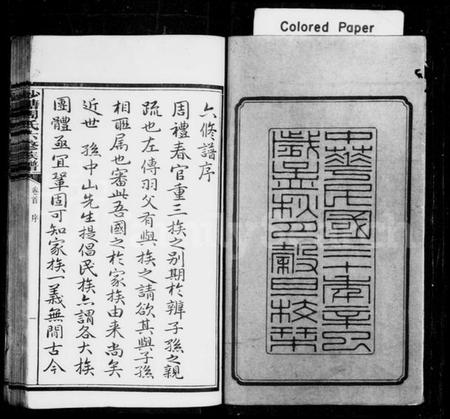 Colored Paper
中華民國三十年辛巳
歲孟秋月穀旦校栞
六修譜序
周禮春官重三族之別期於辨子孫之親
疏也左傳羽父有與族之請欲其與子孫
相聯属也審此吾國之於家族由来尚矣
近世 孫中山先生提倡民族亦謂各大族
團體亟宜鞏固可知家族一義無間古今
周氏六修族譜
卷首 序